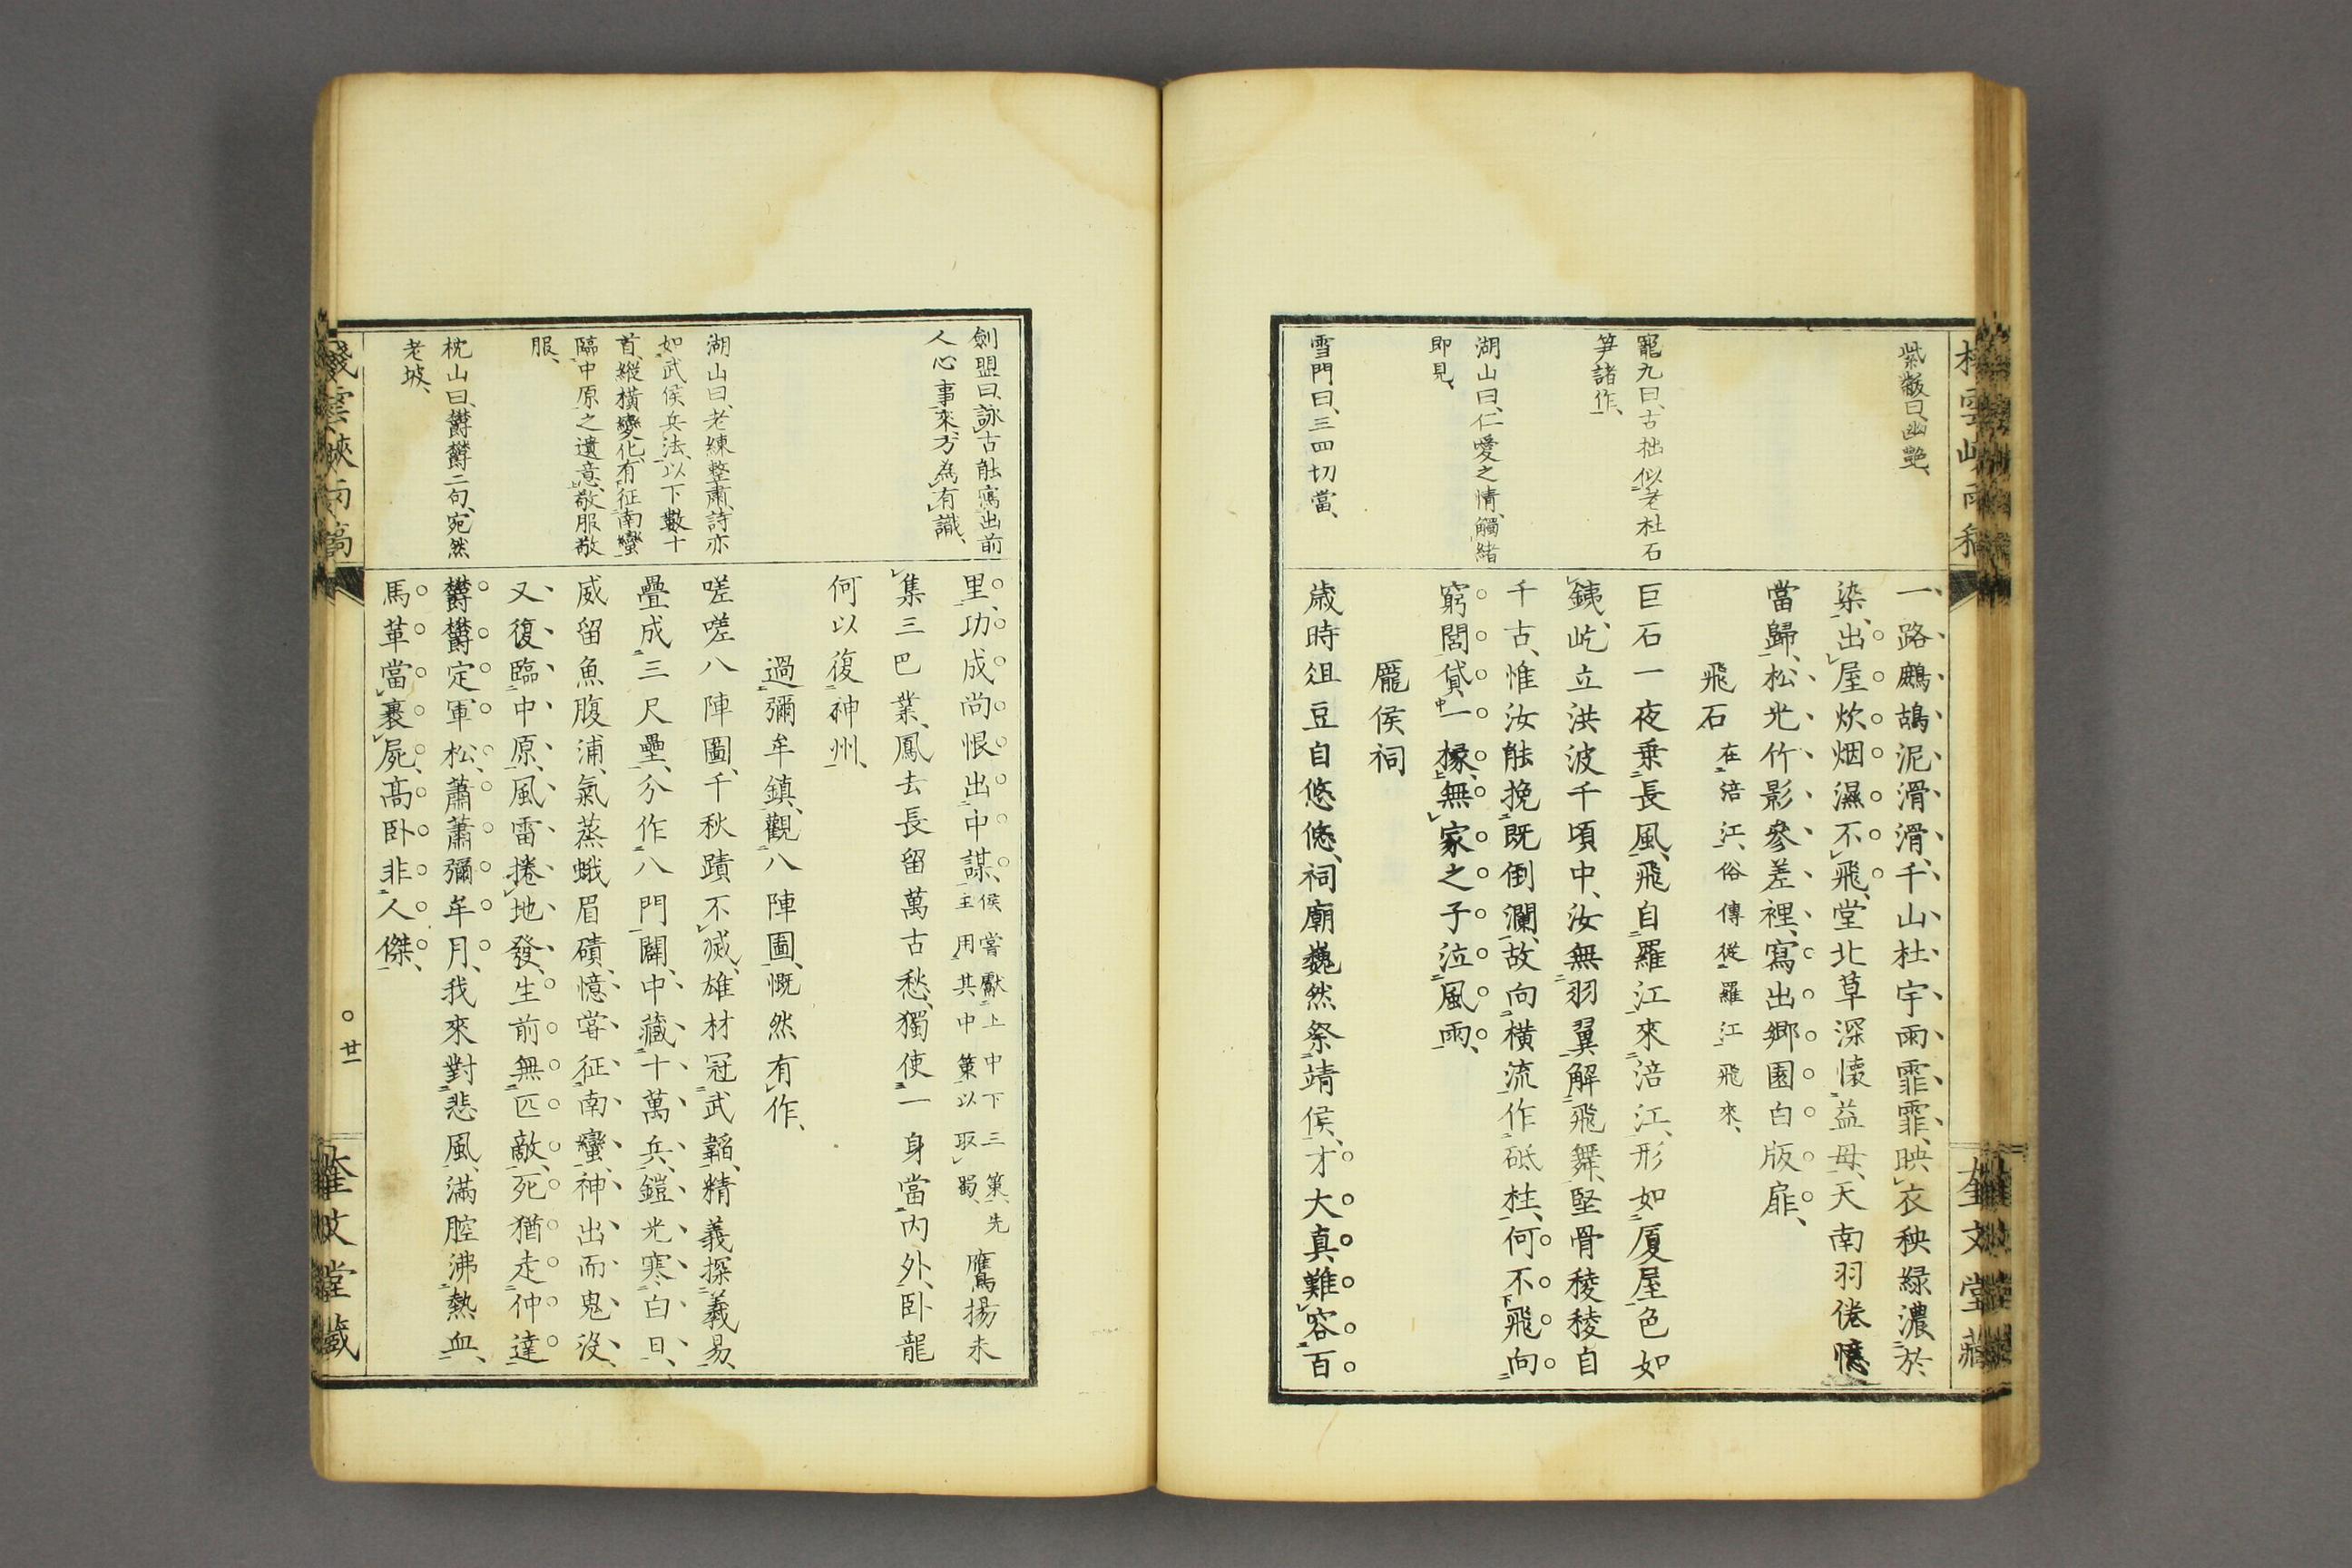 紫瀫曰、幽艷、
寵九曰、古拙似老杜石
笋諸作、
湖山曰、仁愛之情、觸緒
即見、
雪門曰、三四切當、
一路鷓鴣泥滑滑、千山杜宇雨霏霏、映衣秧綠濃於
染、出屋炊烟濕不飛、堂北草深懷益母、天南羽倦憶
當歸、松光竹影參差裡、寫出鄉園白版扉、
飛石 在涪江、俗傳從羅江飛來、
巨石一夜乗長風、飛自羅江來涪江、形如厦屋色如
銕、屹立洪波千頃中、汝無羽翼解飛舞、堅骨稜稜自
千古、惟汝能挽既倒瀾、故向橫流作砥柱、何不飛向
窮閻貸一椽、無家之子泣風雨、
龐侯祠
歲時俎豆自悠悠、祠廟巍然祭靖侯、才大真難容百
劍盟曰、詠古能寫出前
人心事來、方為有識、
湖山曰、老練整肅、詩亦
如武侯兵法、以下數十
首、縱橫變化、有征南蠻
臨中原之遺意、敬服敬
服、
枕山曰、欝欝二句、宛然
老坡、
里、功成尚恨出中謀、侯嘗獻上中下三策、先主用其中策以取蜀、鷹揚未
集三巴業、鳳去長留萬古愁、獨使一身當內外、卧龍
何以復神州、
過彌牟鎮、觀八陣圖、慨然有作、
嗟嗟八陣圖、千秋蹟不滅、雄材冠武韜、精義探羲易、
疊成三尺壘、分作八門闢、中藏十萬兵、鎧光寒白日、
威留魚腹浦、氣蒸蛾眉磧、憶嘗征南蠻、神出而鬼沒、
又復臨中原、風雷捲地發、生前無匹敵、死猶走仲達
欝欝定軍松、蕭蕭彌牟月、我來對悲風、滿腔沸熱血、
馬革當裹屍、高卧非人傑、
棧雲峽雨稿
廿一
奎文堂藏